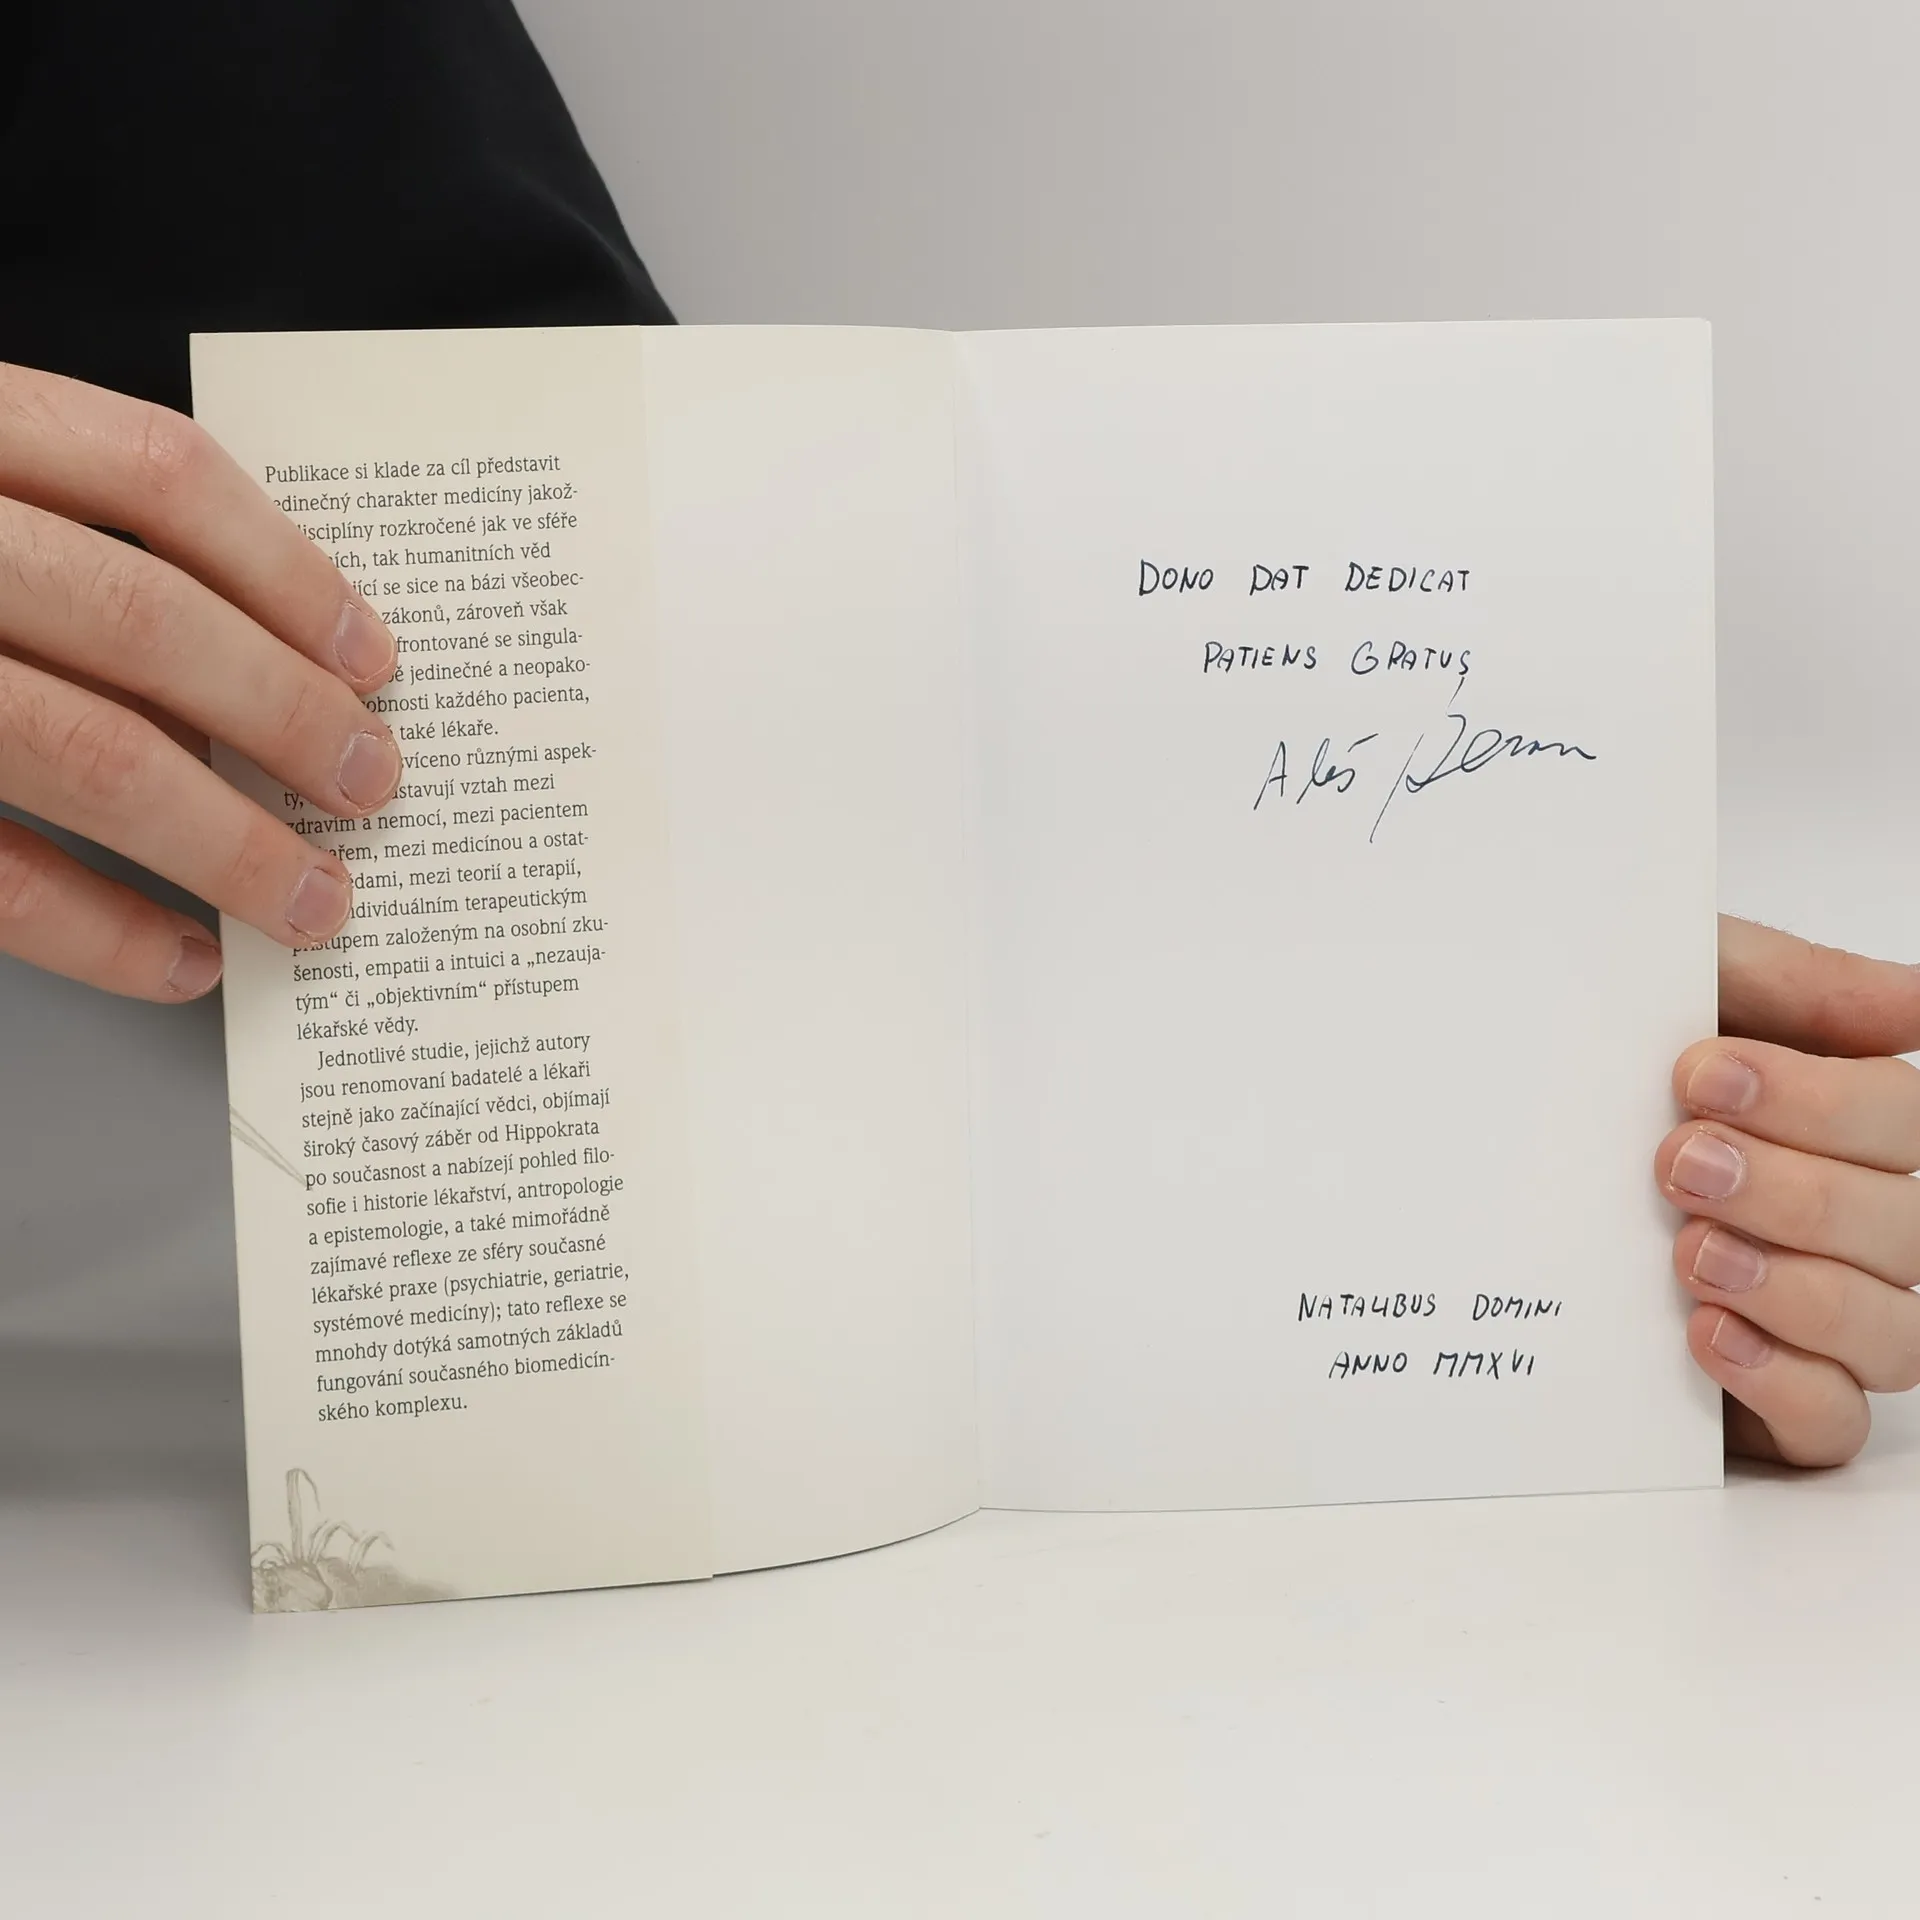 Publikace si klade za cíl představit
edinečný charakter medicíny jakož-
isciplíny rozkročené jak ve sféře
ních, tak humanitních věd
jící se sice na bázi všeobec-
zákonů, zároveň však
frontované se singula-
ě jedinečné a neopako-
obnosti každého pacienta,
také lékaře.
svíceno různými aspek-
ty, stavují vztah mezi
zdravím a nemocí, mezi pacientem
ařem, mezi medicínou a ostat-
ědami, mezi teorií a terapií,
ndividuálním terapeutickým
přístupem založeným na osobní zku-
šenosti, empatii a intuici a „nezauja-
tým“ či „objektivním“ přístupem
lékařské vědy.
Jednotlivé studie, jejichž autory
jsou renomovaní badatelé a lékaři
stejně jako začínající vědci, objímají
široký časový záběr od Hippokrata
po současnost a nabízejí pohled filo-
sofie i historie lékařství, antropologie
a epistemologie, a také mimořádně
zajímavé reflexe ze sféry současné
lékařské praxe (psychiatrie, geriatrie,
systémové medicíny); tato reflexe se
mnohdy dotýká samotných základů
fungování současného biomedicín-
ského komplexu.
DONO DAT DEDICAT
PATIENS GRATUS
Aleš
NATALIBUS DOMINI
ANNO MMXVI